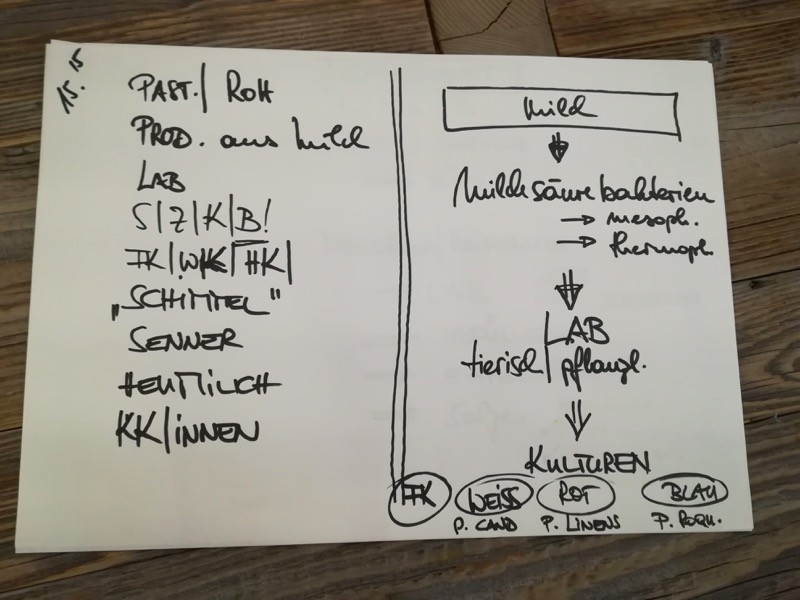 15.15
PAST. | ROH
PROD. aus Milch
LAB
S | Z | K | B!
FK | WK | HK |
„SCHIMMEL"
SENNER
HEUMILCH
KK | iNNEN
Milch
Milchsäurebakterien
→ mesoph.
→ thermoph.
LAB
tierisch | pflanzl.
KULTUREN
FK WEISS ROT BLAU
P. CAND P. LINENS P. ROQU.